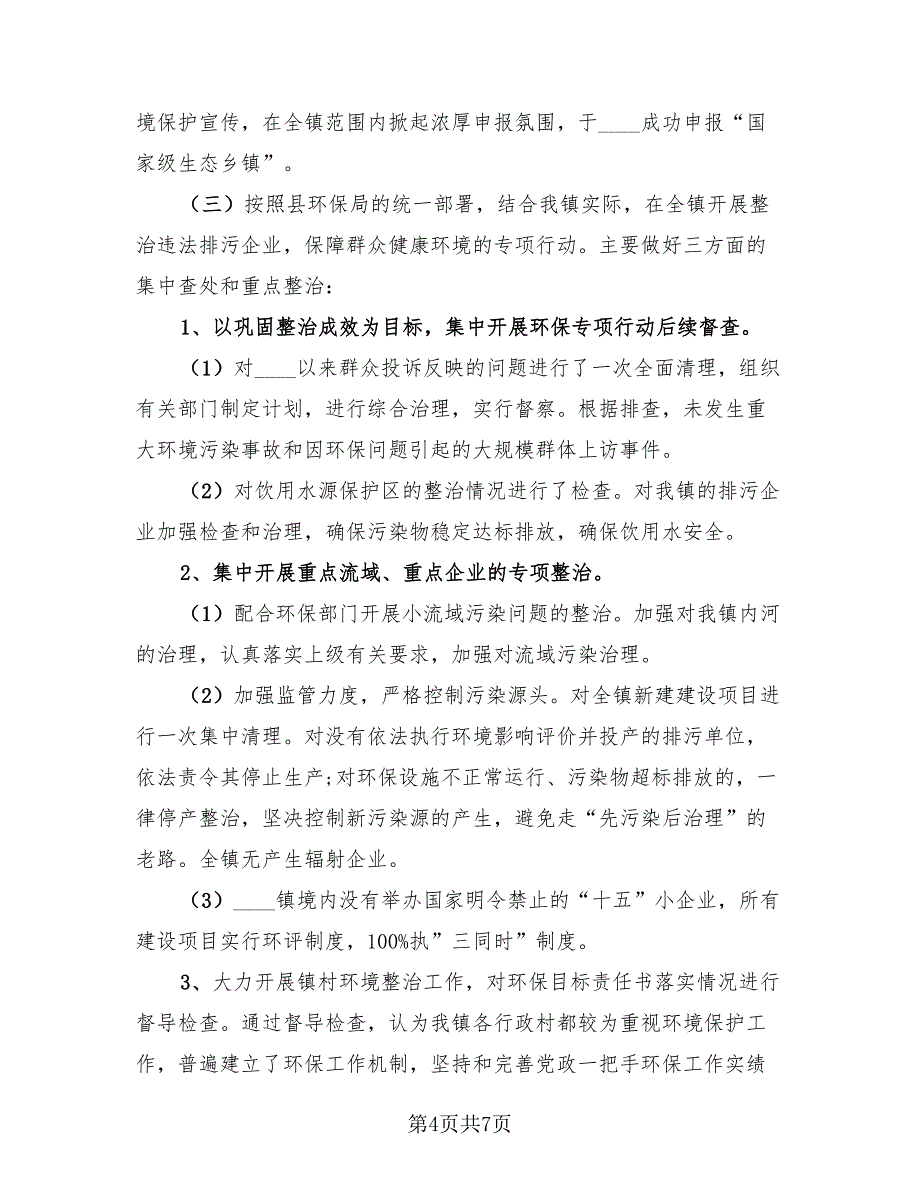 境保护宣传，在全镇范围内掀起浓厚申报氛围，于____成功申报“国
家级生态乡镇”。
（三）按照县环保局的统一部署，结合我镇实际，在全镇开展整
治违法排污企业，保障群众健康环境的专项行动。主要做好三方面的
集中查处和重点整治：
1、以巩固整治成效为目标，集中开展环保专项行动后续督查。
（1）对____以来群众投诉反映的问题进行了一次全面清理，组织
有关部门制定计划，进行综合治理，实行督察。根据排查，未发生重
大环境污染事故和因环保问题引起的大规模群体上访事件。
（2）对饮用水源保护区的整治情况进行了检查。对我镇的排污企
业加强检查和治理，确保污染物稳定达标排放，确保饮用水安全。
2、集中开展重点流域、重点企业的专项整治。
（1）配合环保部门开展小流域污染问题的整治。加强对我镇内河
的治理，认真落实上级有关要求，加强对流域污染治理。
（2）加强监管力度，严格控制污染源头。对全镇新建建设项目进
行一次集中清理。对没有依法执行环境影响评价并投产的排污单位，
依法责令其停止生产;对环保设施不正常运行、污染物超标排放的，一
律停产整治，坚决控制新污染源的产生，避免走“先污染后治理”的
老路。全镇无产生辐射企业。
（3）____镇境内没有举办国家明令禁止的“十五”小企业，所有
建设项目实行环评制度，100%执”三同时”制度。
3、大力开展镇村环境整治工作，对环保目标责任书落实情况进行
督导检查。通过督导检查，认为我镇各行政村都较为重视环境保护工
作，普遍建立了环保工作机制，坚持和完善党政一把手环保工作实绩
第4页共7页